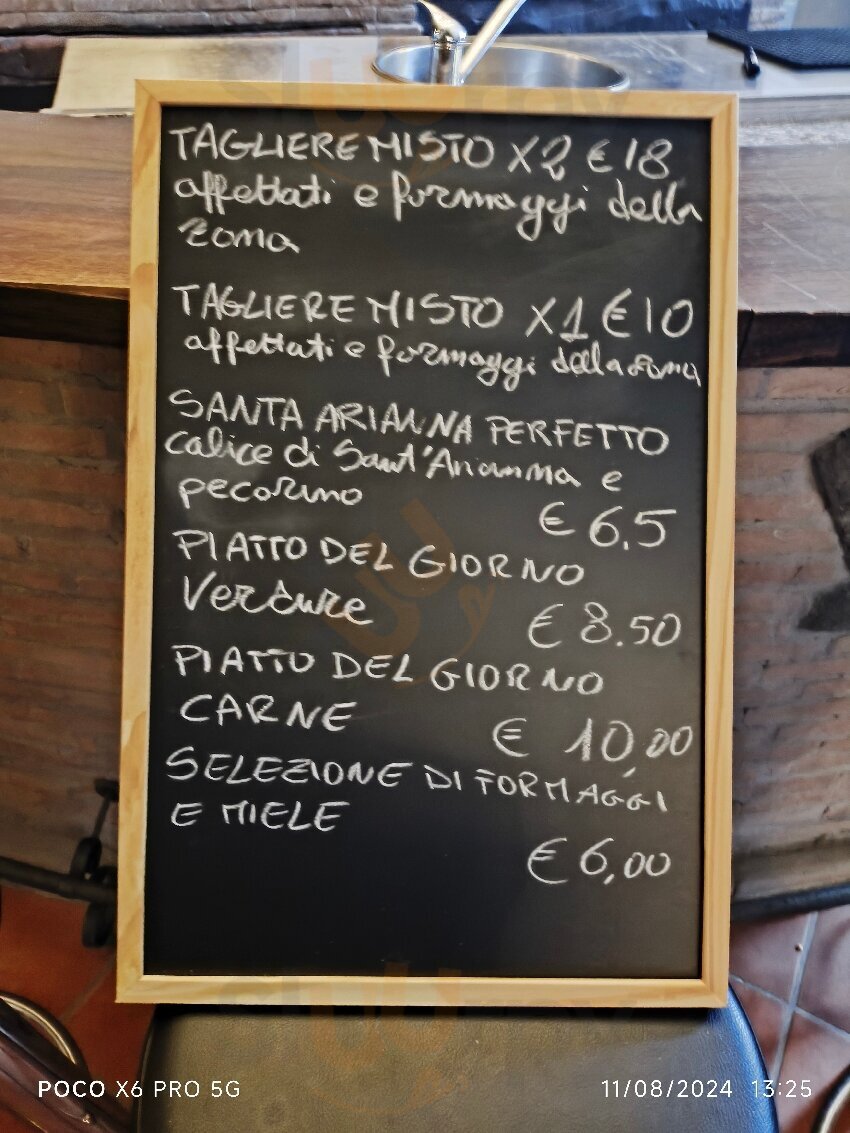 TAGLIERE MISTO X2 € 18
affettati e formaggi della
zona
TAGLIERE MISTO X1 € 10
affettati e formaggi della zona
SANTA ARIANNA PERFETTO
calice di Sant'Arianna e
pecorino
€ 6.5
PIATTO DEL GIORNO
Verdure
€ 8.50
PIATTO DEL GIORNO
CARNE
€ 10,00
SELEZIONE DI FORMAGGI
E MIELE
€ 6,00
POCO X6 PRO 5G
11/08/2024 13:25